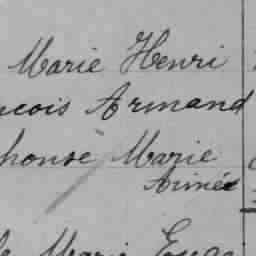 Marie Henri
ncois Armand
honse Marie
Aimée
Marie Euge